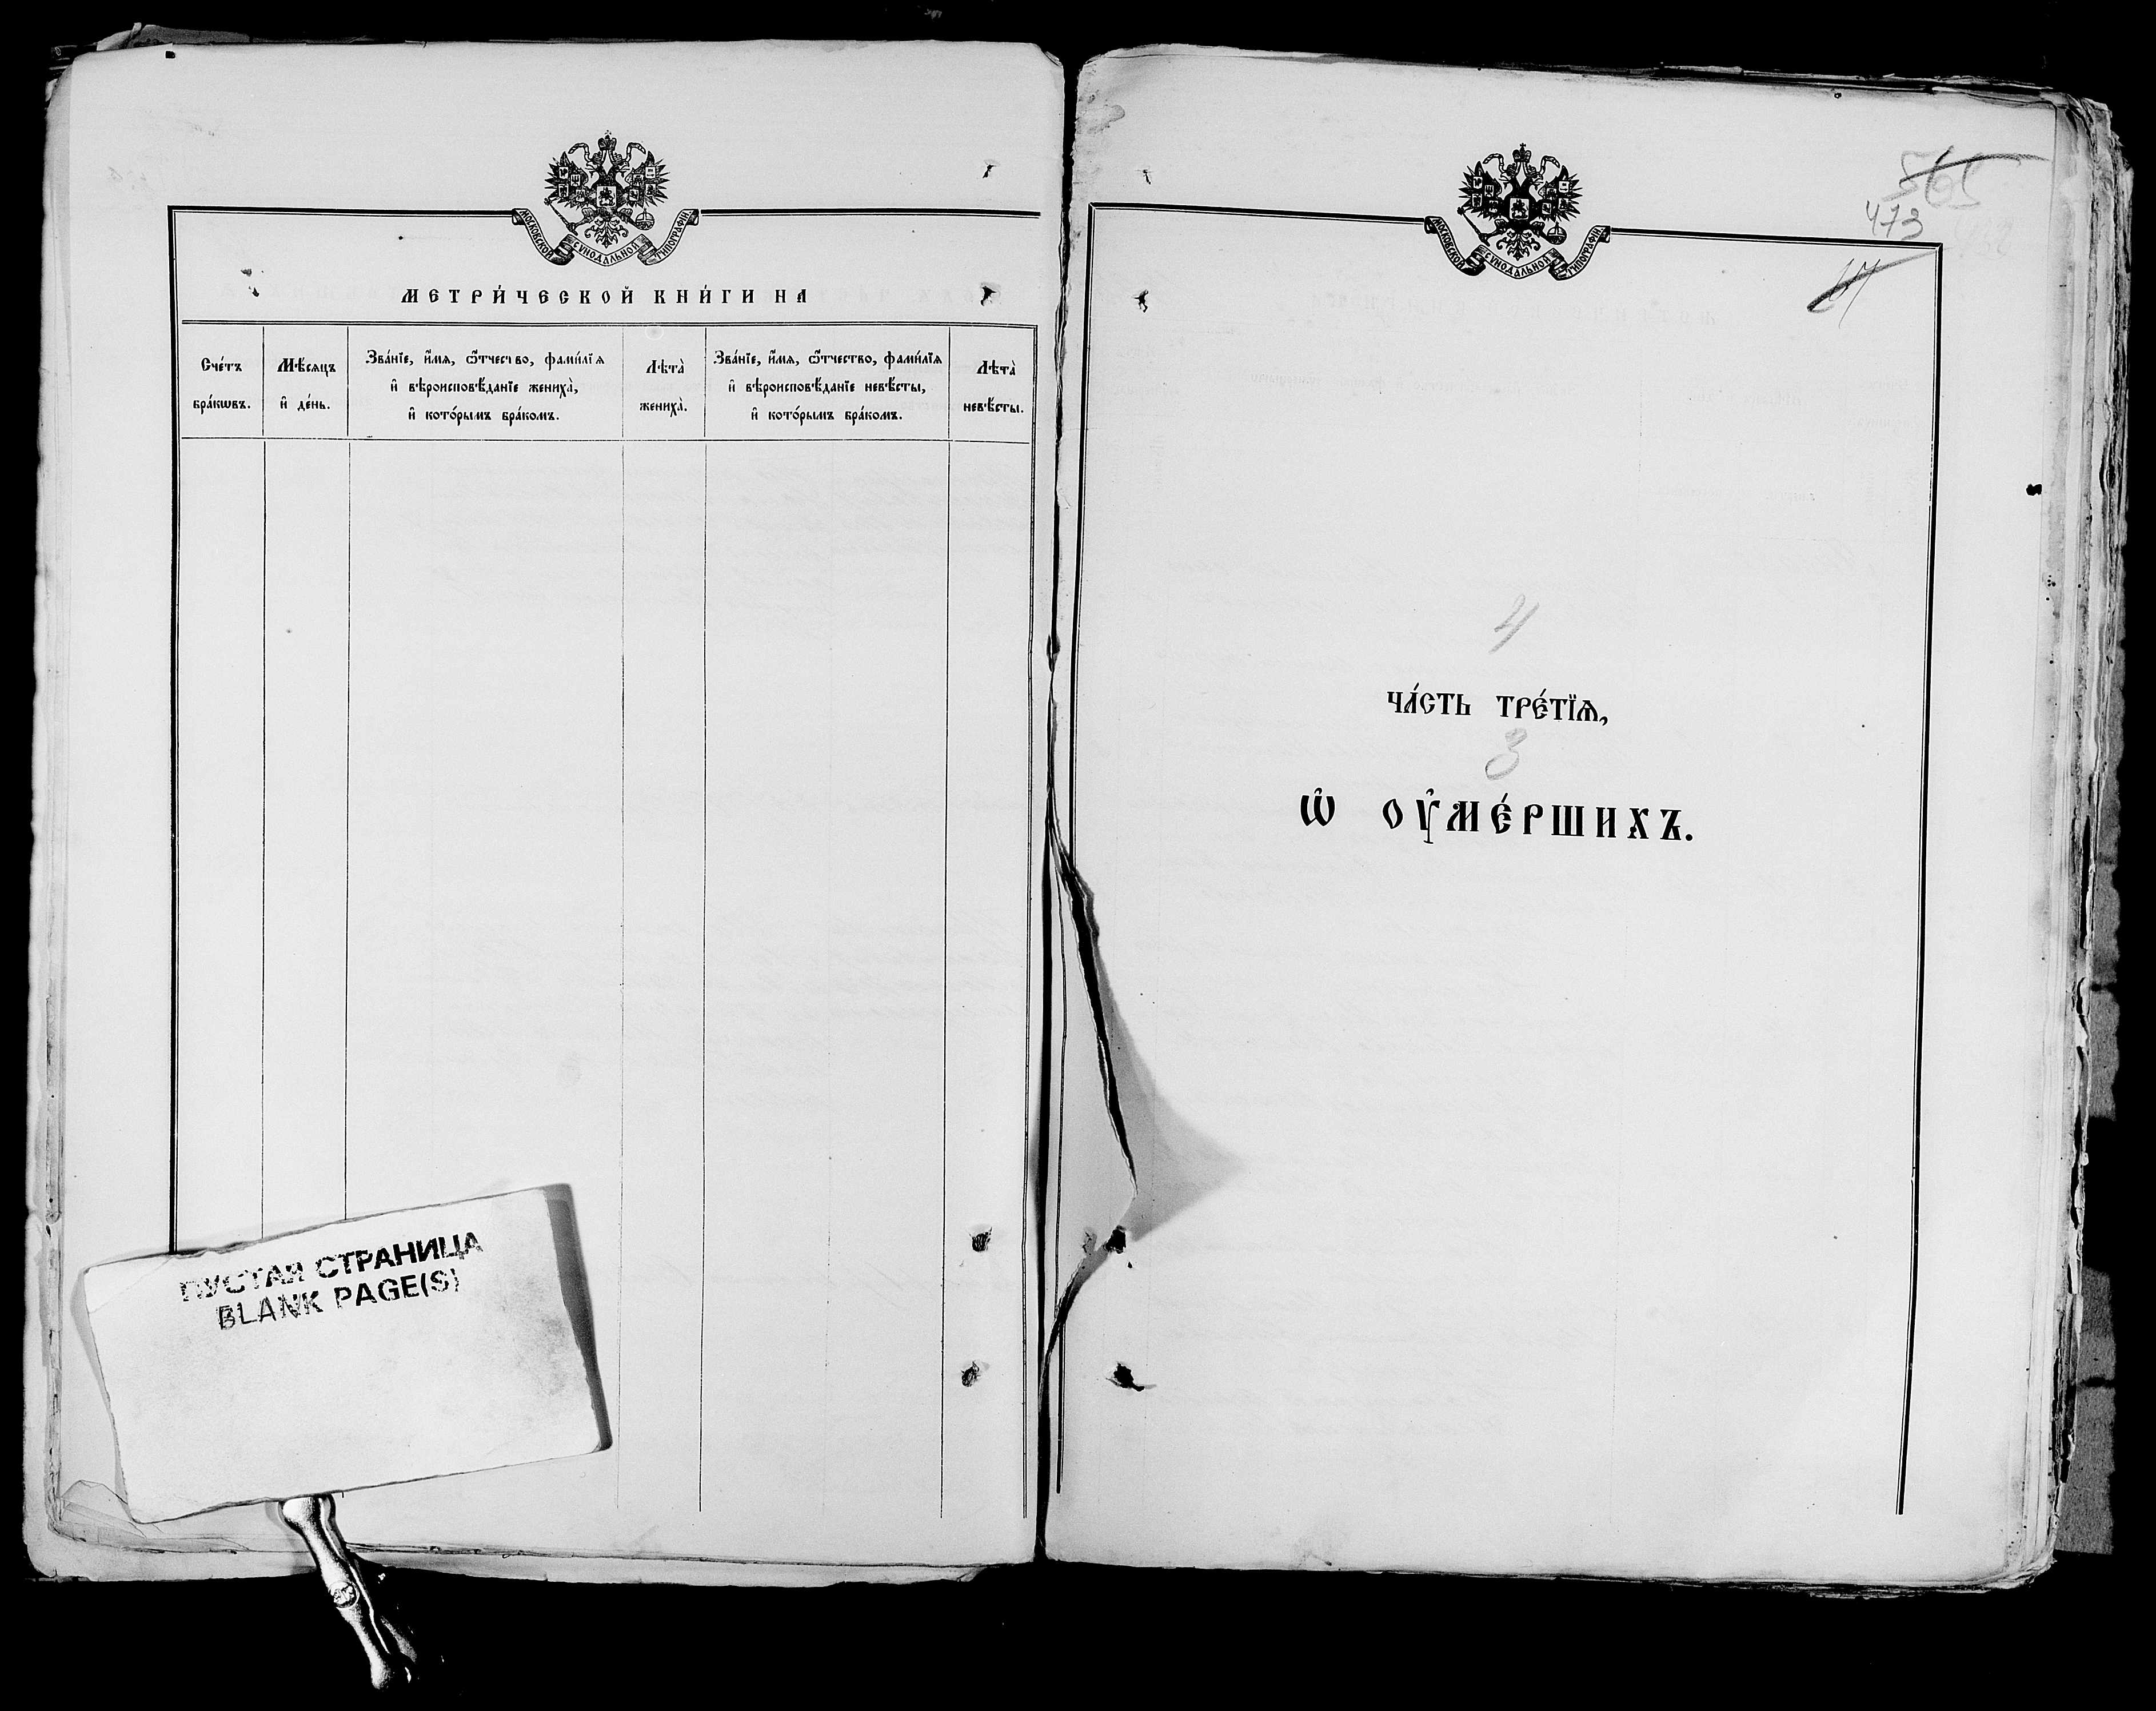 МОСКОВСКОЙ СУНОДАЛЬНОЙ ТИПОГРАФІИ
МЕТРИ́ЧЕСКОЙ КНИ́ГИ НА
Сче́тъ бра́кѡвъ.
Мѣ́сяцъ и҆ де́нь.
Зва́нїе, и҆́мѧ, ѻ҆́тчество, фамѝлїѧ
и҆ вѣроисповѣ́данїе жениха̀,
и҆ кото́рымъ бра́комъ.
Лѣта̀ жениха̀.
Зва́нїе, и҆́мѧ, ѻ҆́тчество, фамѝлїѧ
и҆ вѣроисповѣ́данїе невѣ́сты,
и҆ кото́рымъ бра́комъ.
Лѣта̀ невѣ́сты.
ПУСТАЯ СТРАНИЦА
BLANK PAGE(S)
МОСКОВСКОЙ СУНОДАЛЬНОЙ ТИПОГРАФІИ
565
473
4
ЧА́СТЬ ТРЕ́ТЇѦ,
3
Ѡ҆ ОУ҆МЕ́РШИХЪ.